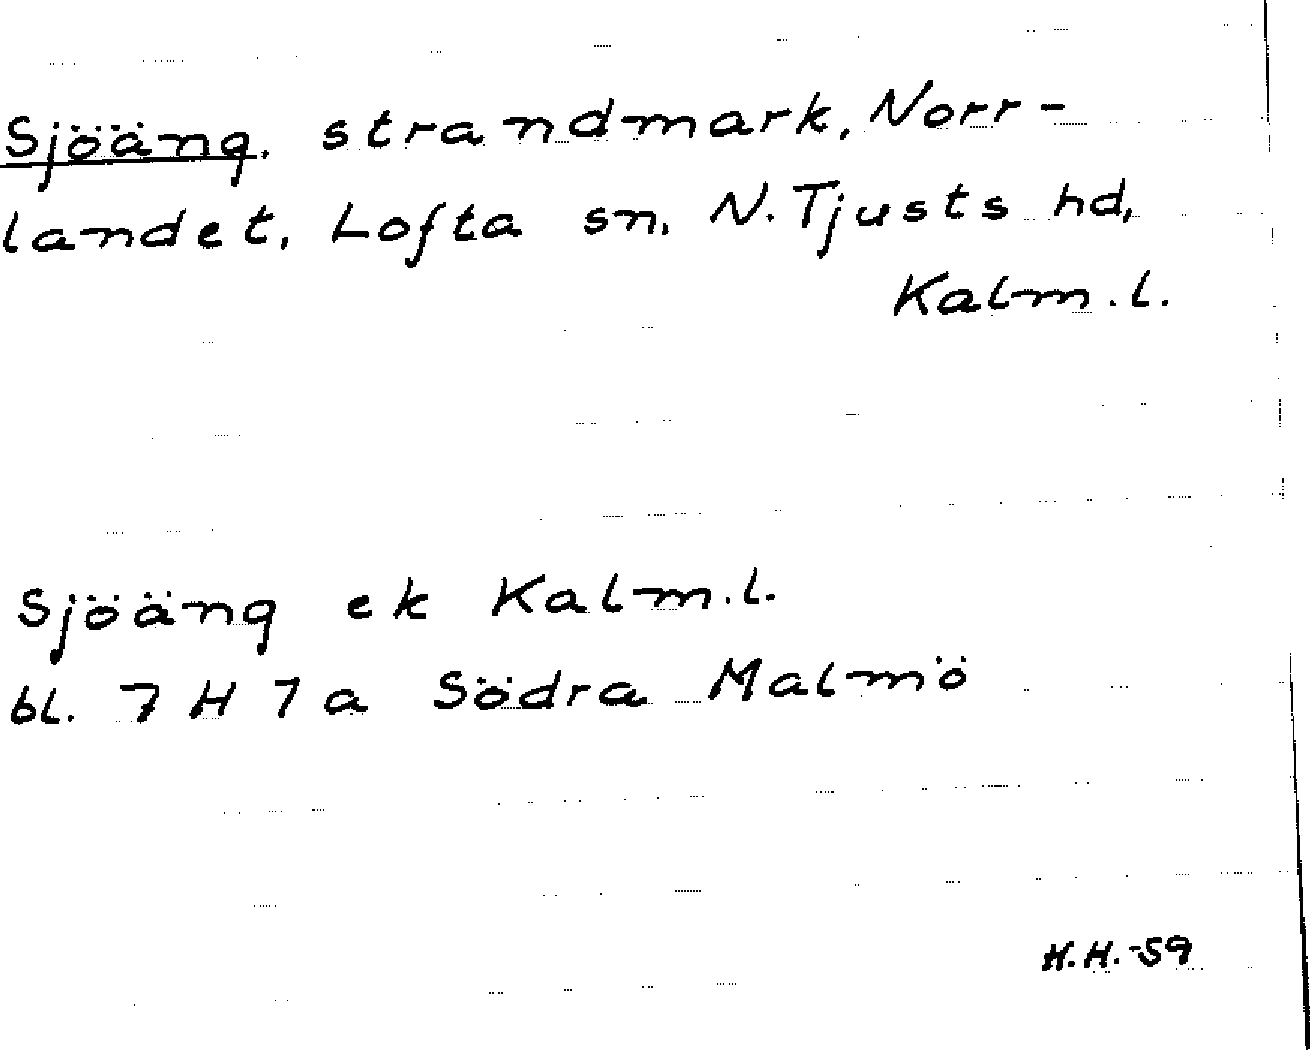 Sjöäng, strandmark, Norr-
landet, Lofta sn, N. Tjusts hd,
Kalm. l.
Sjöäng ek Kalm. l.
bl. 7 H 7 a Södra Malmö
H.H.-59